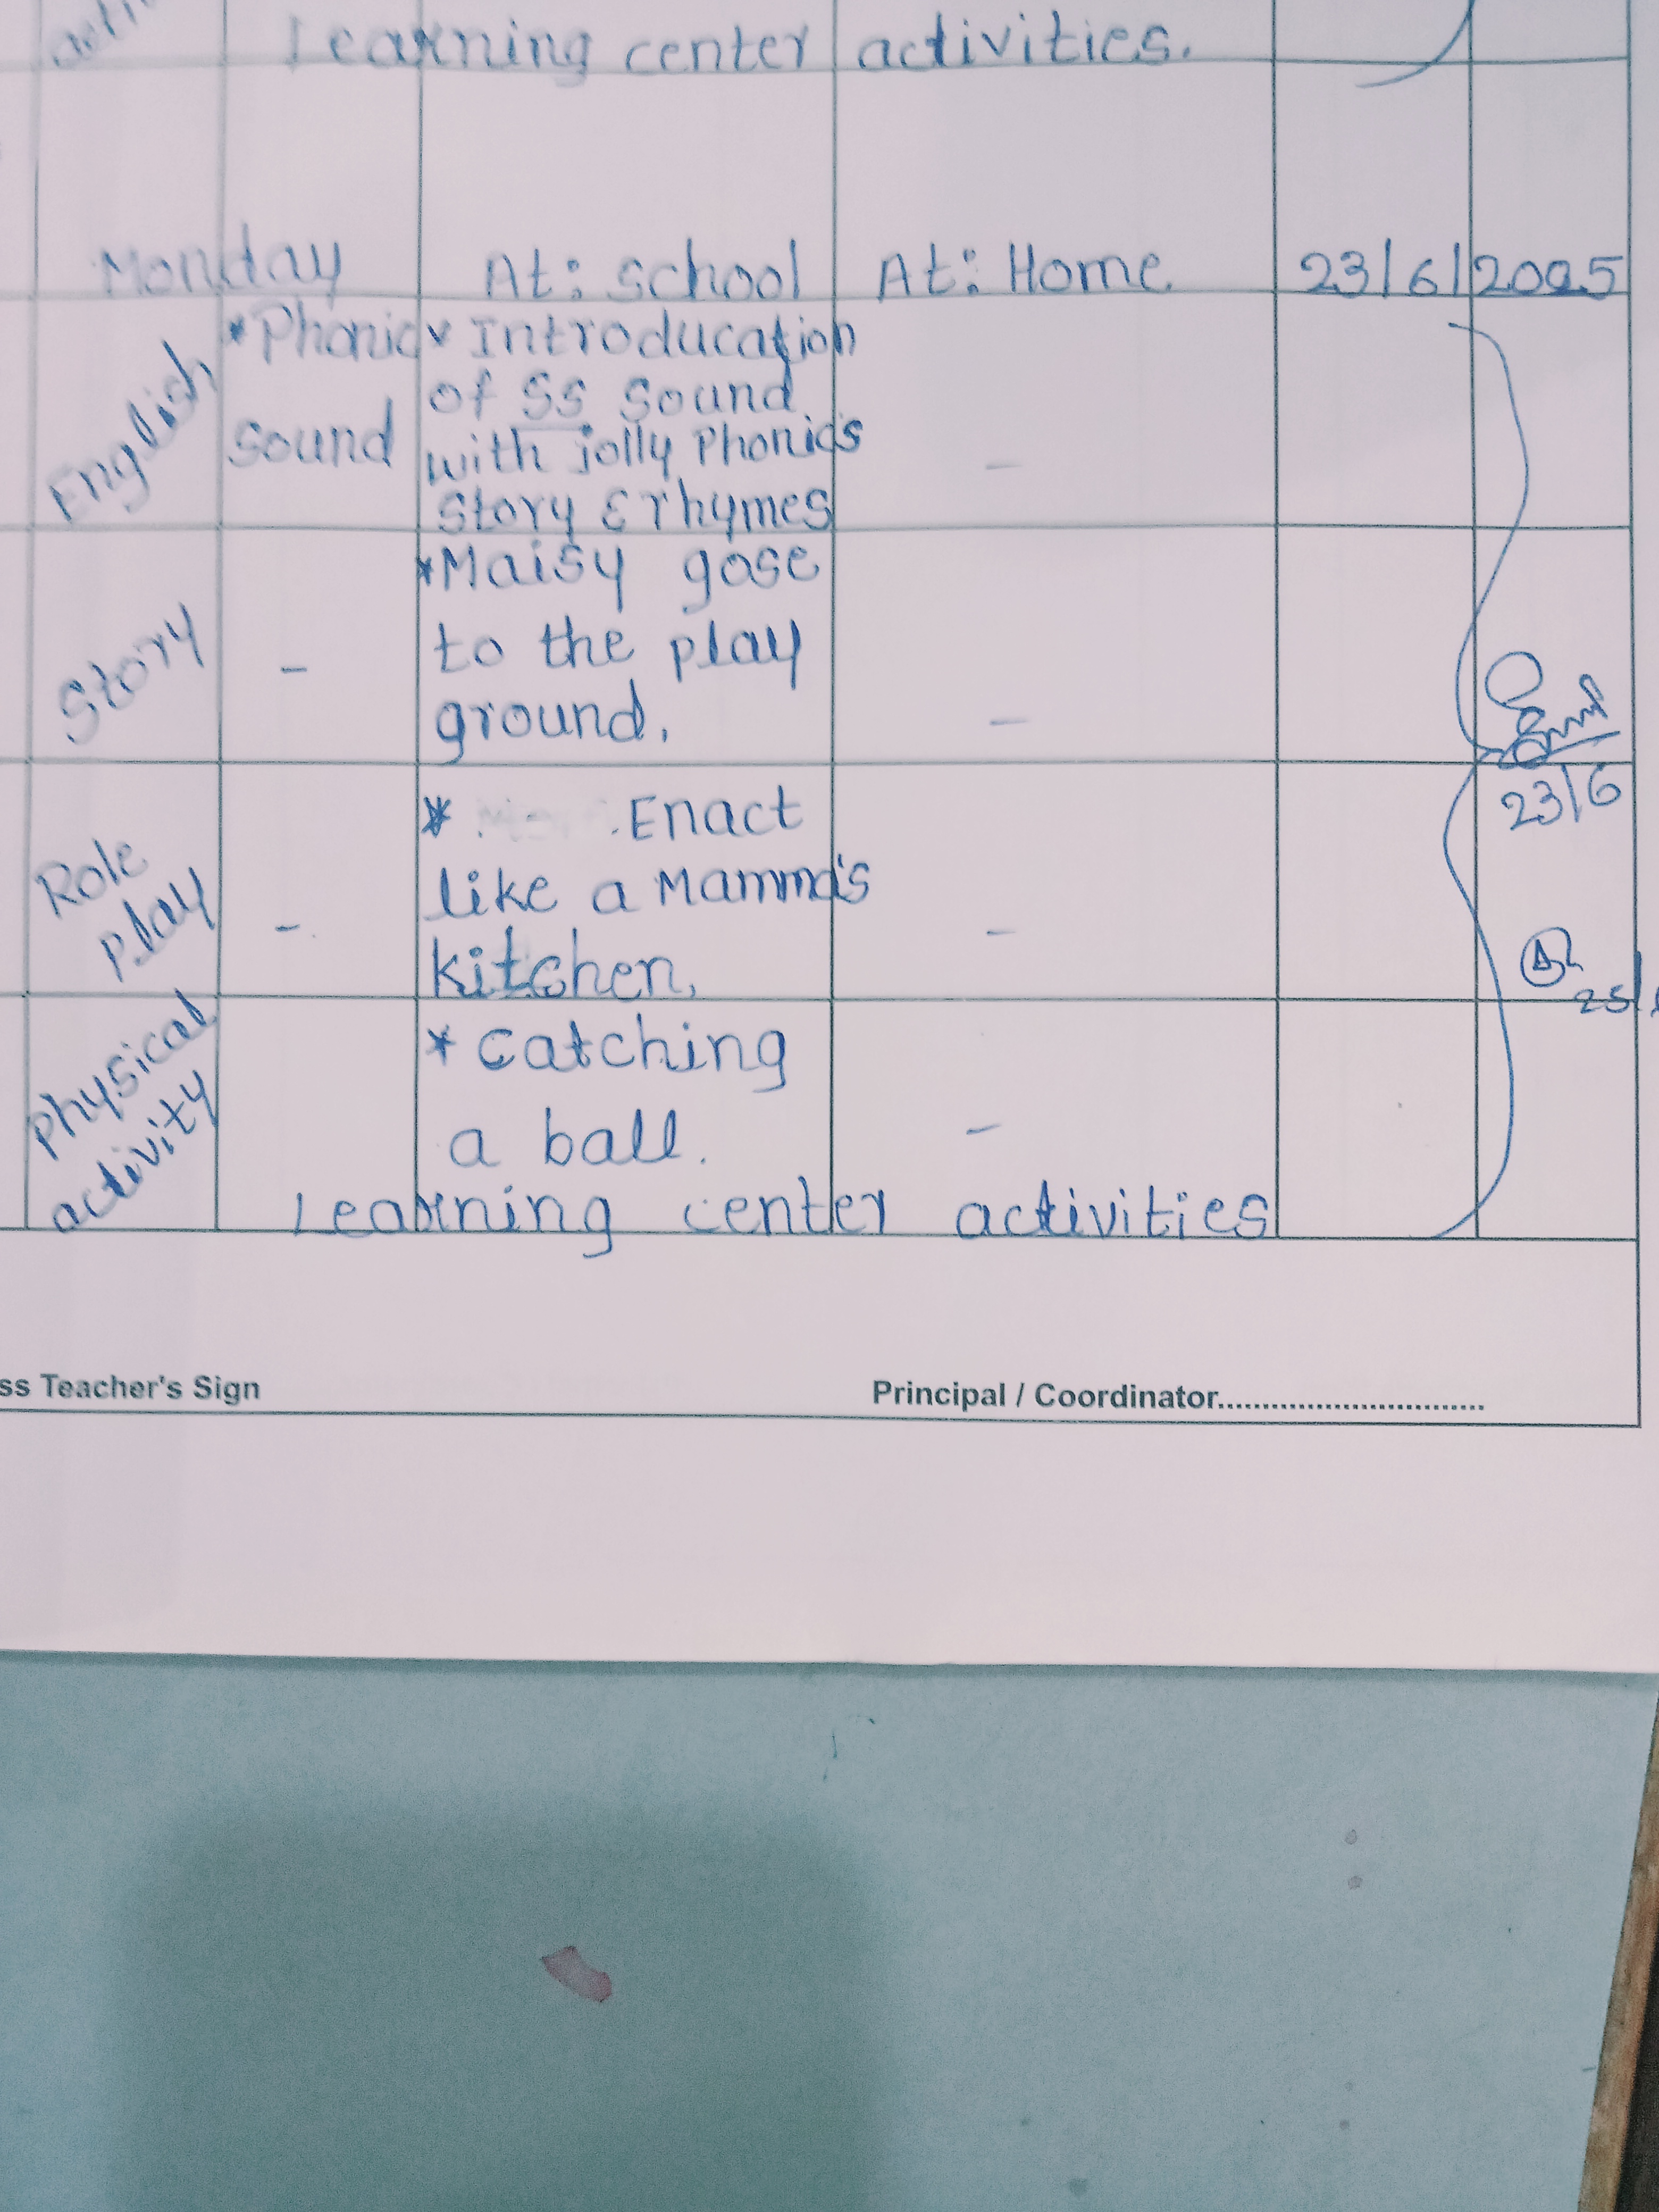 Learning center activities.
Monday At: school At: Home 23/6/2025
English
*Phonic
sound
* Introducation
of Ss Sound
with jolly Phonics
Story & rhymes
-
Story
-
*Maisy gose
to the play
ground.
-
23/6
Role
play
-
* Enact
like a Mamma's
kitchen.
-
Physical
activity
* Catching
a ball.
-
Learning center activities
ss Teacher's Sign
Principal / Coordinator..............................